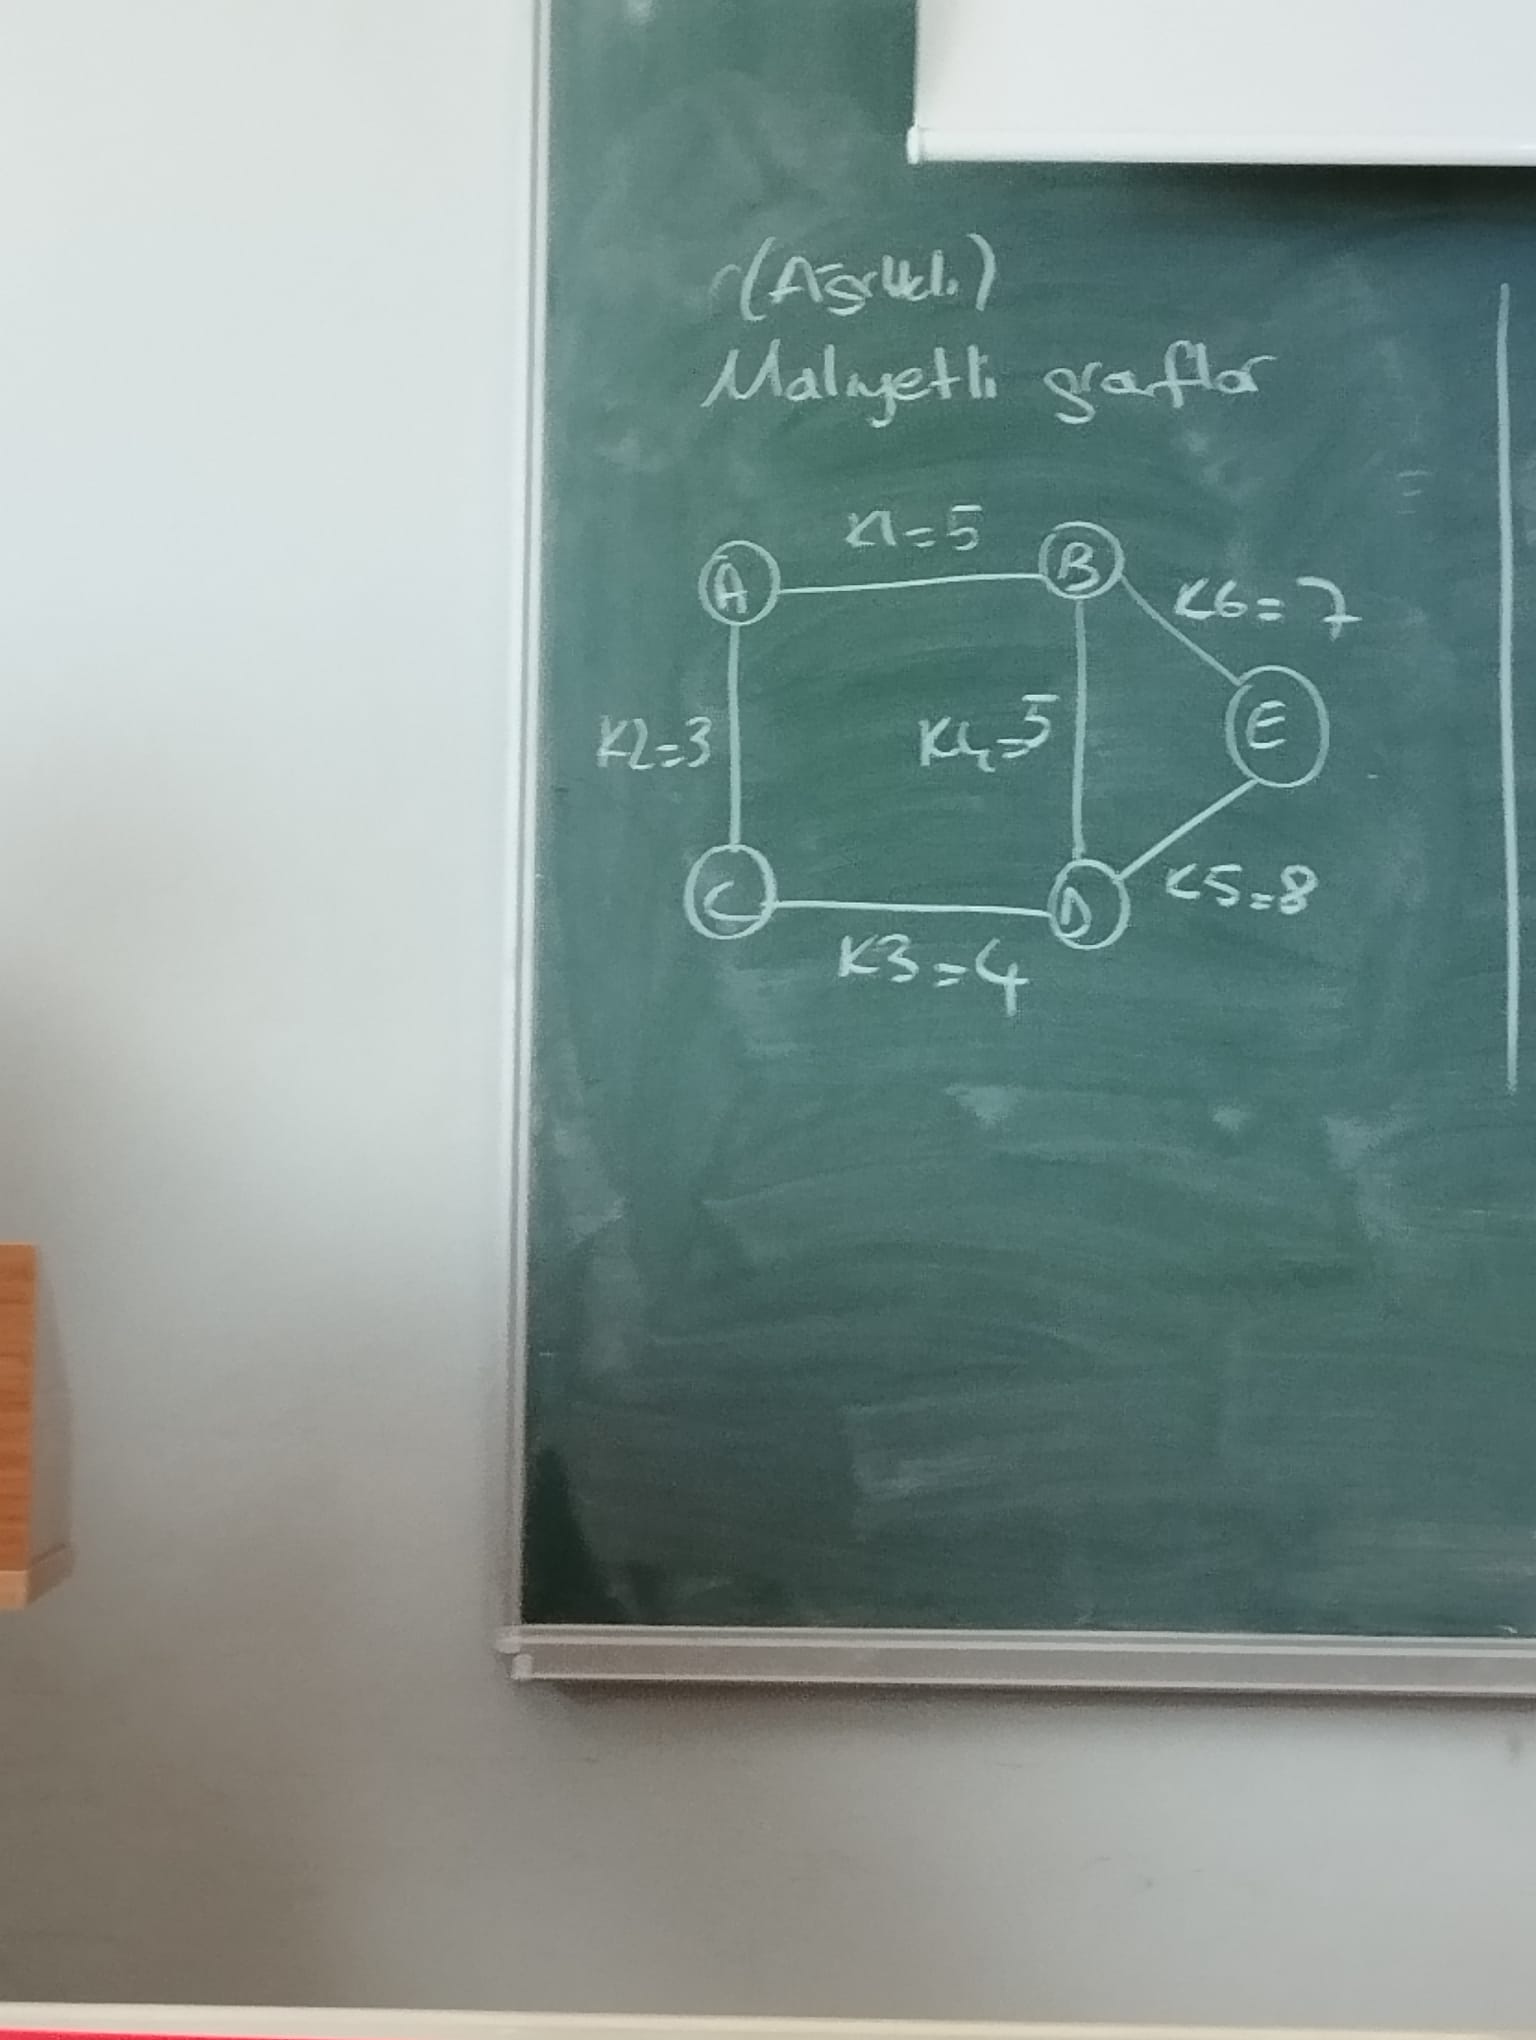 (Ağırlıklı)
Maliyetli graflar
K1=5
A
B
K6=7
K2=3
K4=5
E
C
D
K5=8
K3=4